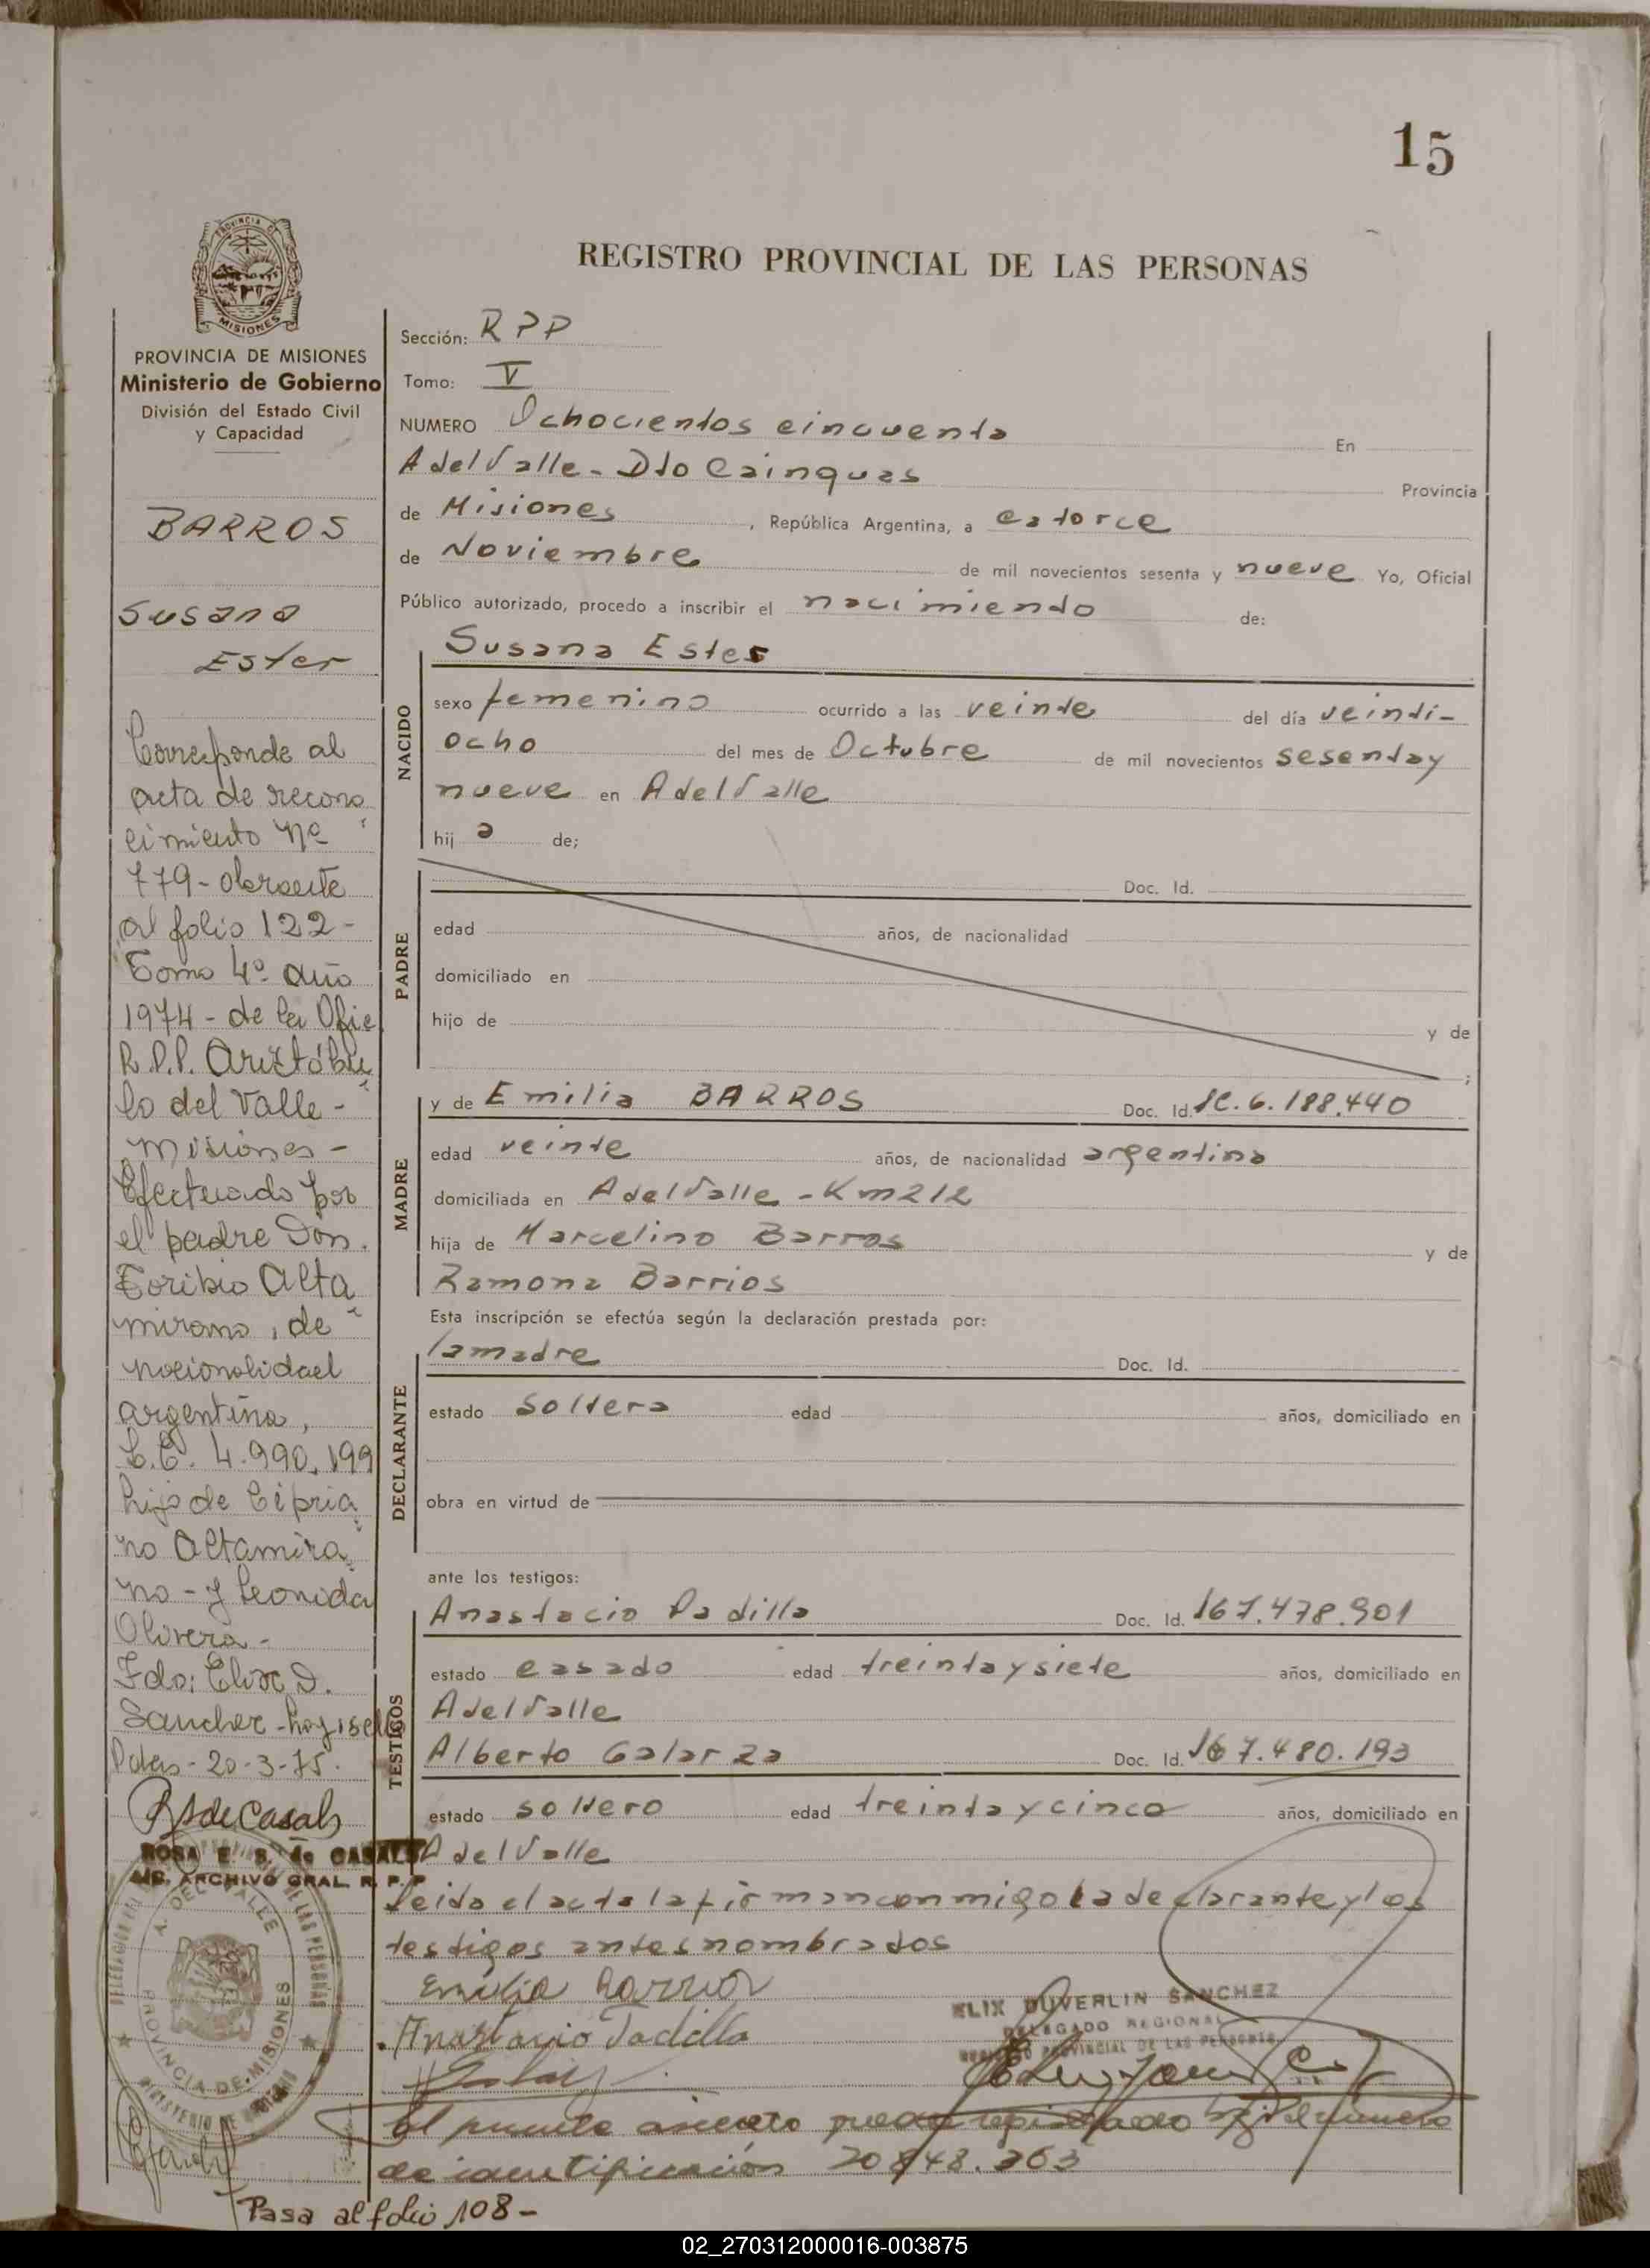 15
REGISTRO PROVINCIAL DE LAS PERSONAS
PROVINCIA DE MISIONES
Ministerio de Gobierno
División del Estado Civil
y Capacidad
BARROS
Susana
Ester
Corresponde al
acta de recono
cimiento Nº
779 - obrante
al folio 122 -
Tomo 4º año
1974 - de la Ofic
R.P.P. Aristóbu
lo del Valle -
Misiones -
Efectuado por
el padre Don.
Toribio Alta
mirano, de
nacionalidad
argentina,
C.C. 4.990.199
hijo de Cipria
no Altamira
no - y Leonida
Olivera -
Fdo: Elix D.
Sanchez - hay sello
Pdas - 20-3-75.
RSdeCasals
ROSA E. S. de CASALS
ARCHIVO GRAL. R. P. P
Sección: RPP
Tomo: V
NUMERO Ochocientos cincuenta En
A del Valle - Dto Cainguas Provincia
de Misiones, República Argentina, a catorce
de Noviembre de mil novecientos sesenta y nueve Yo, Oficial
Público autorizado, procedo a inscribir el nacimiendo de:
Susana Ester
NACIDO
sexo femenino ocurrido a las veinte del día veinti-
ocho del mes de Octubre de mil novecientos sesenta y
nueve en A del Valle
hij a de;
PADRE
Doc. Id.
edad años, de nacionalidad
domiciliado en
hijo de y de
;
MADRE
y de Emilia BARROS Doc. Id. 1C. 6.188.440
edad veinte años, de nacionalidad argentina
domiciliada en A del Valle - Km 212
hija de Marcelino Barros y de
Ramona Barrios
Esta inscripción se efectúa según la declaración prestada por:
DECLARANTE
la madre Doc. Id.
estado soltera edad años, domiciliado en
obra en virtud de
ante los testigos:
TESTIGOS
Anastacio Padilla Doc. Id. 167.478.901
estado casado edad treinta y siete años, domiciliado en
A del Valle
Alberto Galarza Doc. Id. 167.480.193
estado soltero edad treinta y cinco años, domiciliado en
A del Valle
Leida el acta la firman conmigo la declarante y los
testigos antes nombrados
Emilia Barrios
Anastacio Padilla
ELIX DUVERLIN SANCHEZ
DELEGADO REGIONAL
REGISTRO PROVINCIAL DE LAS PERSONAS
A. DEL VALLE
PROVINCIA DE MISIONES
de identificación 20.848.363
Pasa al folio 108 -
02_270312000016-003875